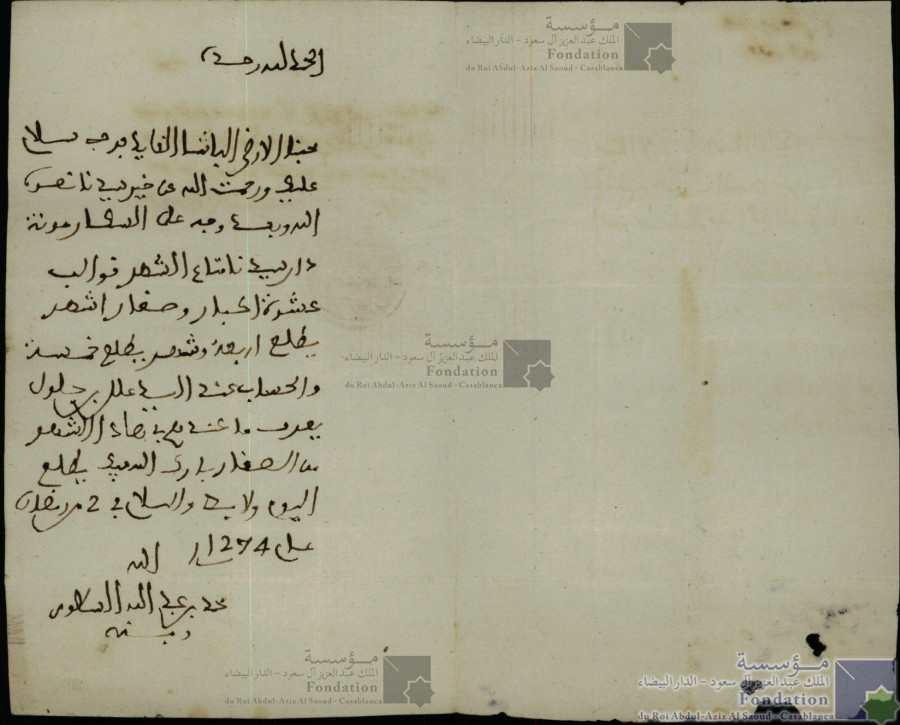 الحمد لله وحده
محبنا الارضى الباشا القايد فرجي سلام
عليك ورحمت الله عن خير سيدنا نصره
الله وبعد وجه على السكار مونة
دار سيدنا نتاع الشهر قوالب
عشرة اكبار وصغار اشهر
يطلع اربعة وشهر يطلع خمسة
والحساب عند السيد علل بن جلول
يعرف ما عند في هاد الشهر
من الصغار بارك الله فيك يطلع
اليوم ولا بد والسلام في 2 من رمضان
عام 1274
محمد بن عبد الله
الله
مؤسسة
الملك عبد العزيز آل سعود - الدار البيضاء
Fondation
du Roi Abdul-Aziz Al Saoud - Casablanca
مؤسسة
الملك عبد العزيز آل سعود - الدار البيضاء
Fondation
du Roi Abdul-Aziz Al Saoud - Casablanca
مؤسسة
الملك عبد العزيز آل سعود - الدار البيضاء
Fondation
du Roi Abdul-Aziz Al Saoud - Casablanca
مؤسسة
الملك عبد العزيز آل سعود - الدار البيضاء
Fondation
du Roi Abdul-Aziz Al Saoud - Casablanca